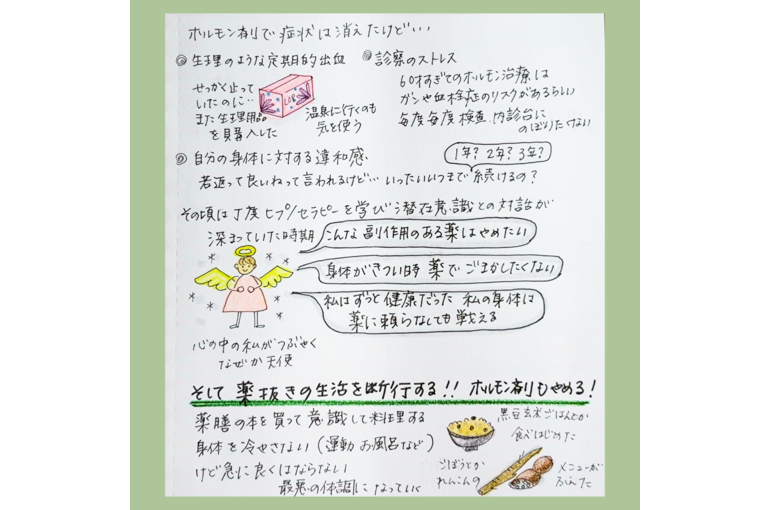 ホルモン剤で症状は消えたけど…
◎生理のような定期的出血
せっかく止って
いたのに…
また生理用品
を購入した
温泉に行くのも
気を使う
◎診察のストレス
60才すぎてのホルモン治療は
ガンや血栓症のリスクがあるらしい
毎度毎度検査、内診台に
のぼりたくない
◎自分の身体に対する違和感、
1年?2年?3年?
若返って良いねって言われるけど…いったいいつまで続けるの?
その頃は丁度ヒプノセラピーを学び潜在意識との対話が
深まっていた時期
こんな副作用のある薬はやめたい
身体がきつい時 薬でごまかしたくない
私はずっと健康だった 私の身体は
薬に頼らなしても戦える
心の中の私がつぶやく
なぜか天使
そして薬抜きの生活を断行する!!ホルモン剤もやめる!
薬膳の本を買って意識して料理する
身体を冷やさない(運動 お風呂など)
けど急に良くはならない
最悪の体調になっていく
黒豆玄米ごはんとか
食べはじめた
ごぼうとか
れんこんの
メニューが
ふえた